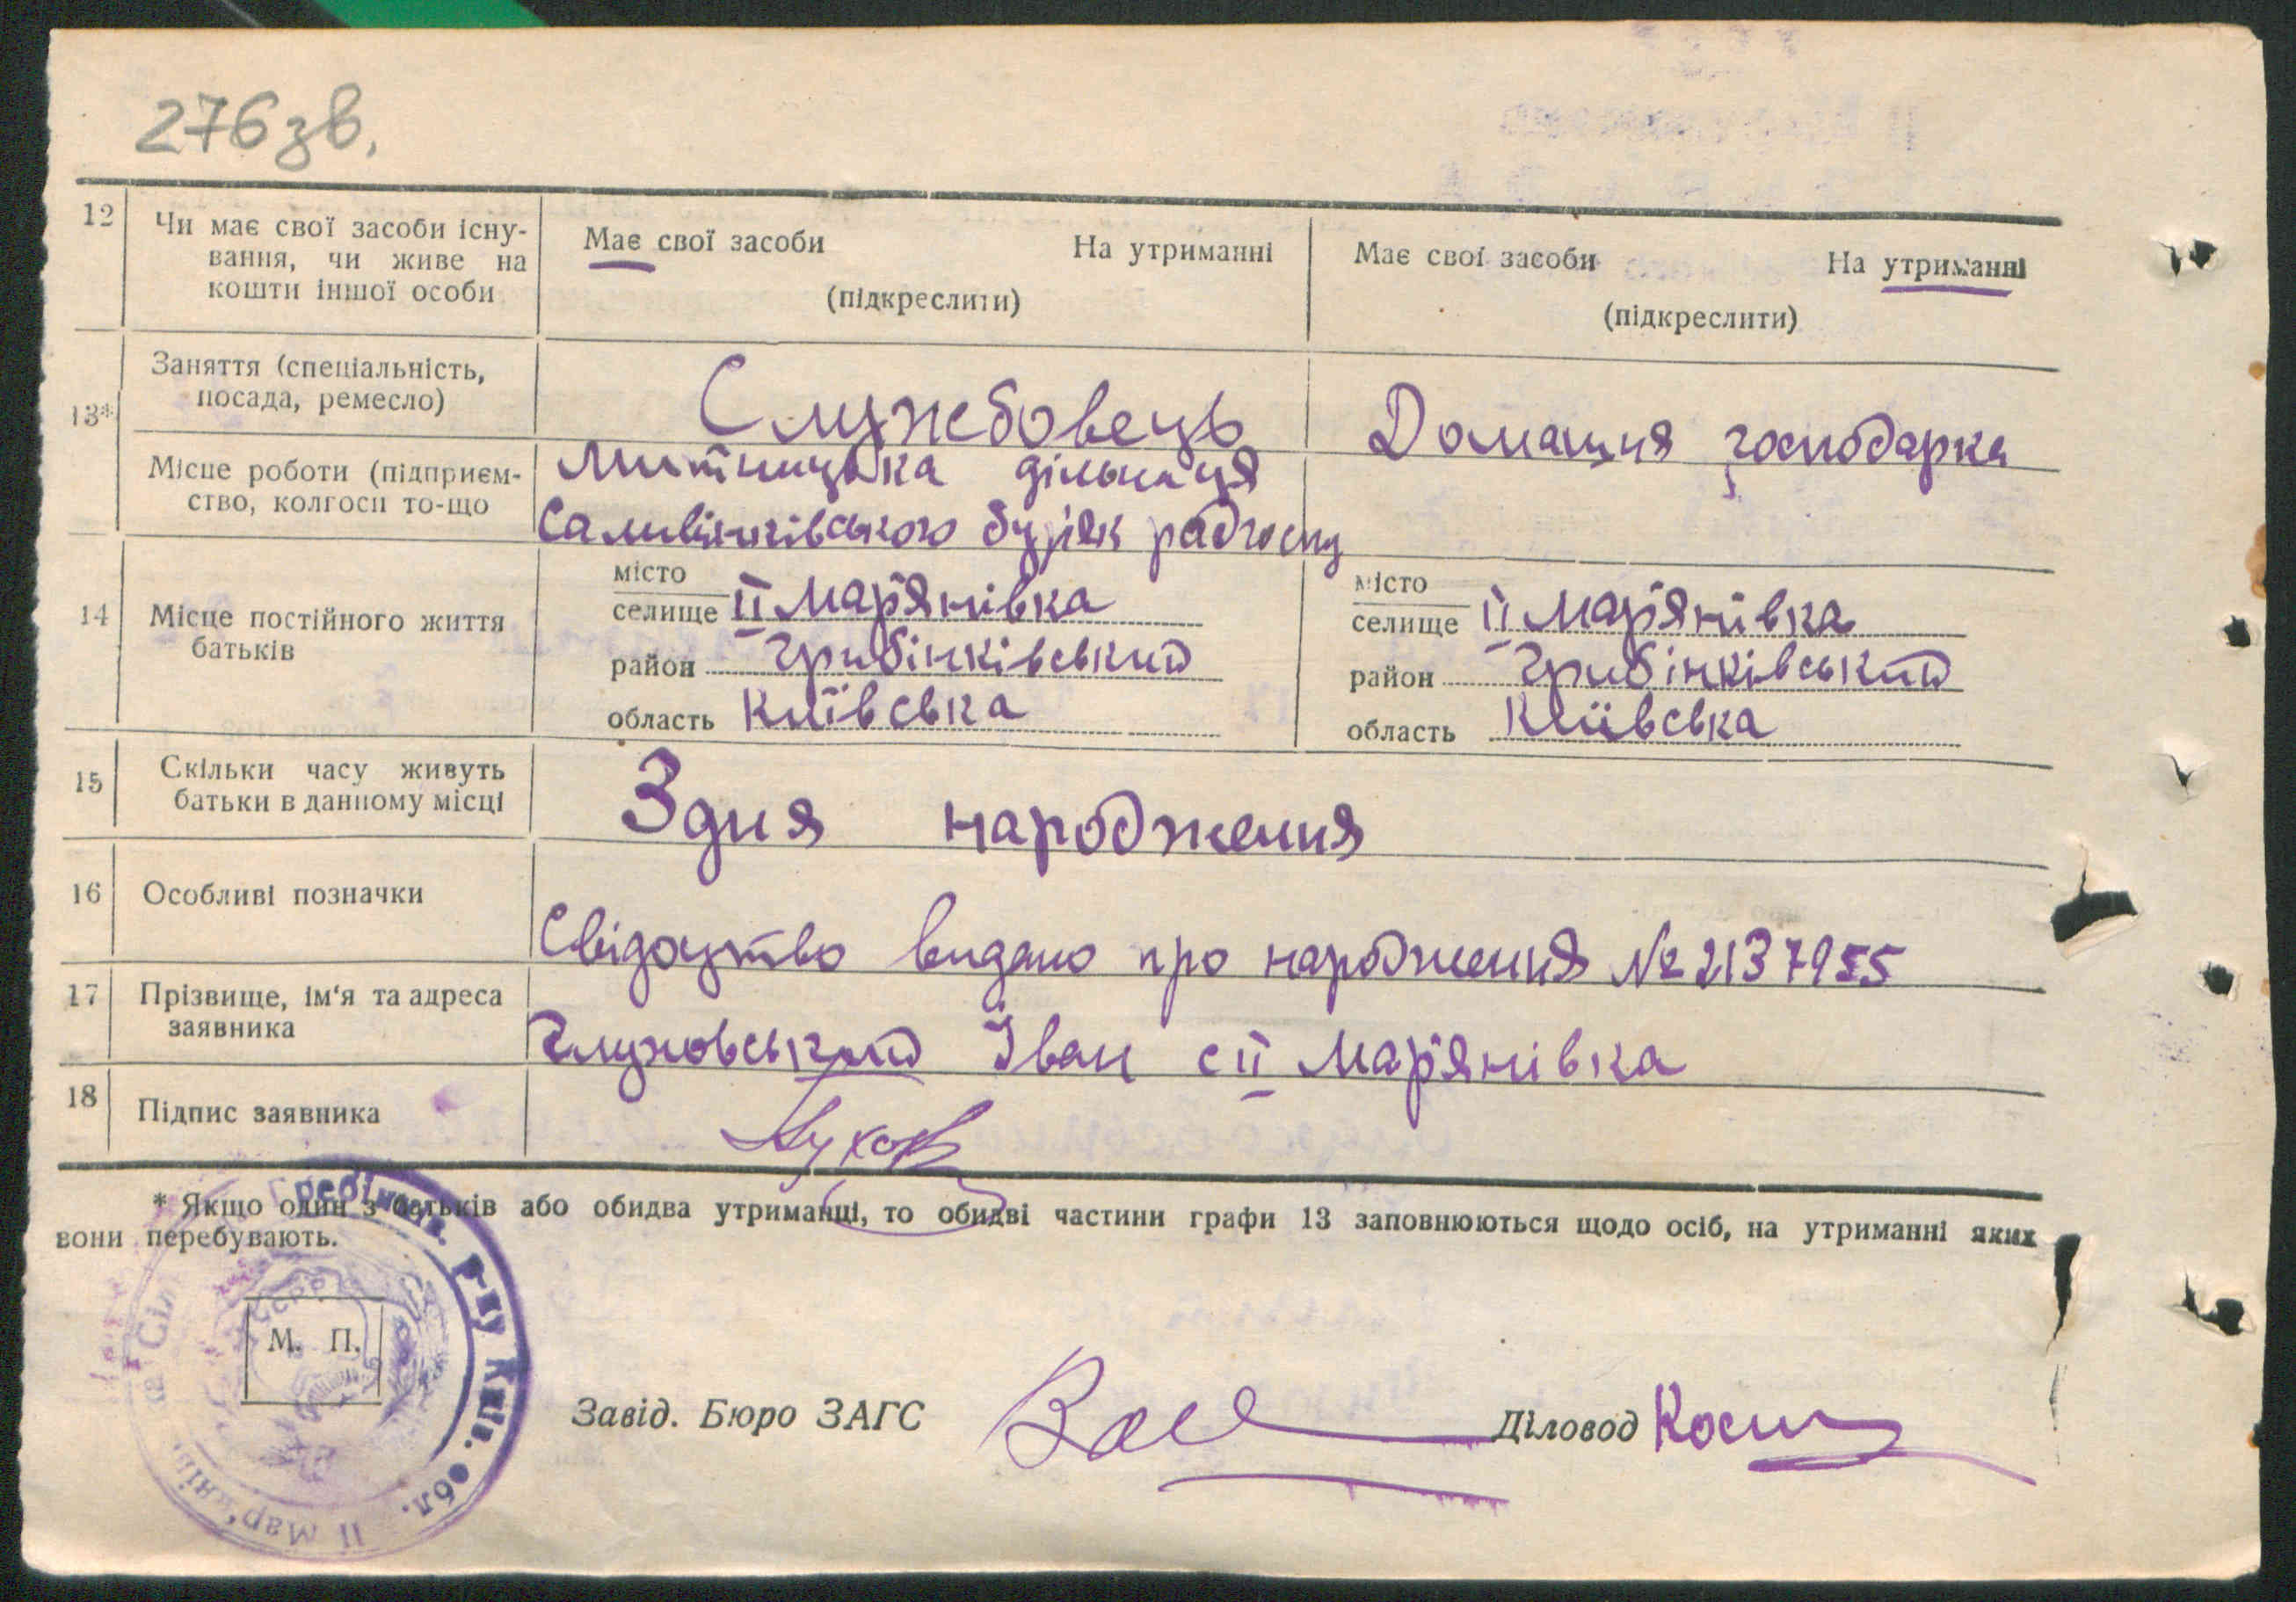 276 зв.
12 Чи має свої засоби існу-
вання, чи живе на
кошти іншої особи
Має свої засоби На утриманні
(підкреслити)
Має свої засоби На утриманні
(підкреслити)
13* Заняття (спеціальність,
посада, ремесло)
Службовець
Домашня господарка
Місце роботи (підприєм-
ство, колгосп то-що
Митницька дільниця
Саливінківського буряк радгоспу
14 Місце постійного життя
батьків
місто
селище ІІ Мар'янівка
район Грибінківський
область Київська
місто
селище ІІ Мар'янівка
район Грибінківський
область Київська
15 Скільки часу живуть
батьки в данному місці
З дня народження
16 Особливі позначки
Свідоцтво видано про народження № 2137955
17 Прізвище, ім'я та адреса
заявника
Глуховський Іван с ІІ Мар'янівка
18 Підпис заявника
* Якщо один з батьків або обидва утриманці, то обидві частини графи 13 заповнюються щодо осіб, на утриманні яких
вони перебувають.
М. П.
Гребінків. р-ну Київ. обл.
ІІ Мар'янів.
Завід. Бюро ЗАГС
Діловод